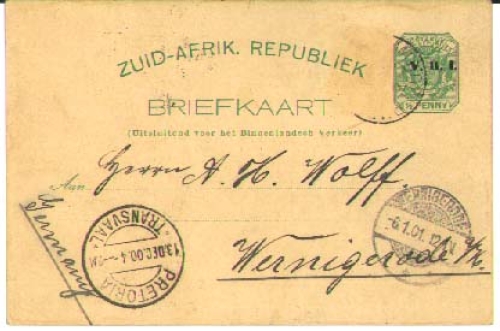 ZUID-AFRIK. REPUBLIEK
V. R. I.
½ PENNY
BRIEFKAART
(Uitsluitend voor het Binnenlandsch Verkeer)
Aan
Herrn A. H. Wolff.
Wernigerode
Germany
PRETORIA
TRANSVAAL
13.DEC.00.4
WERNIGERODE
-6.1.01.12